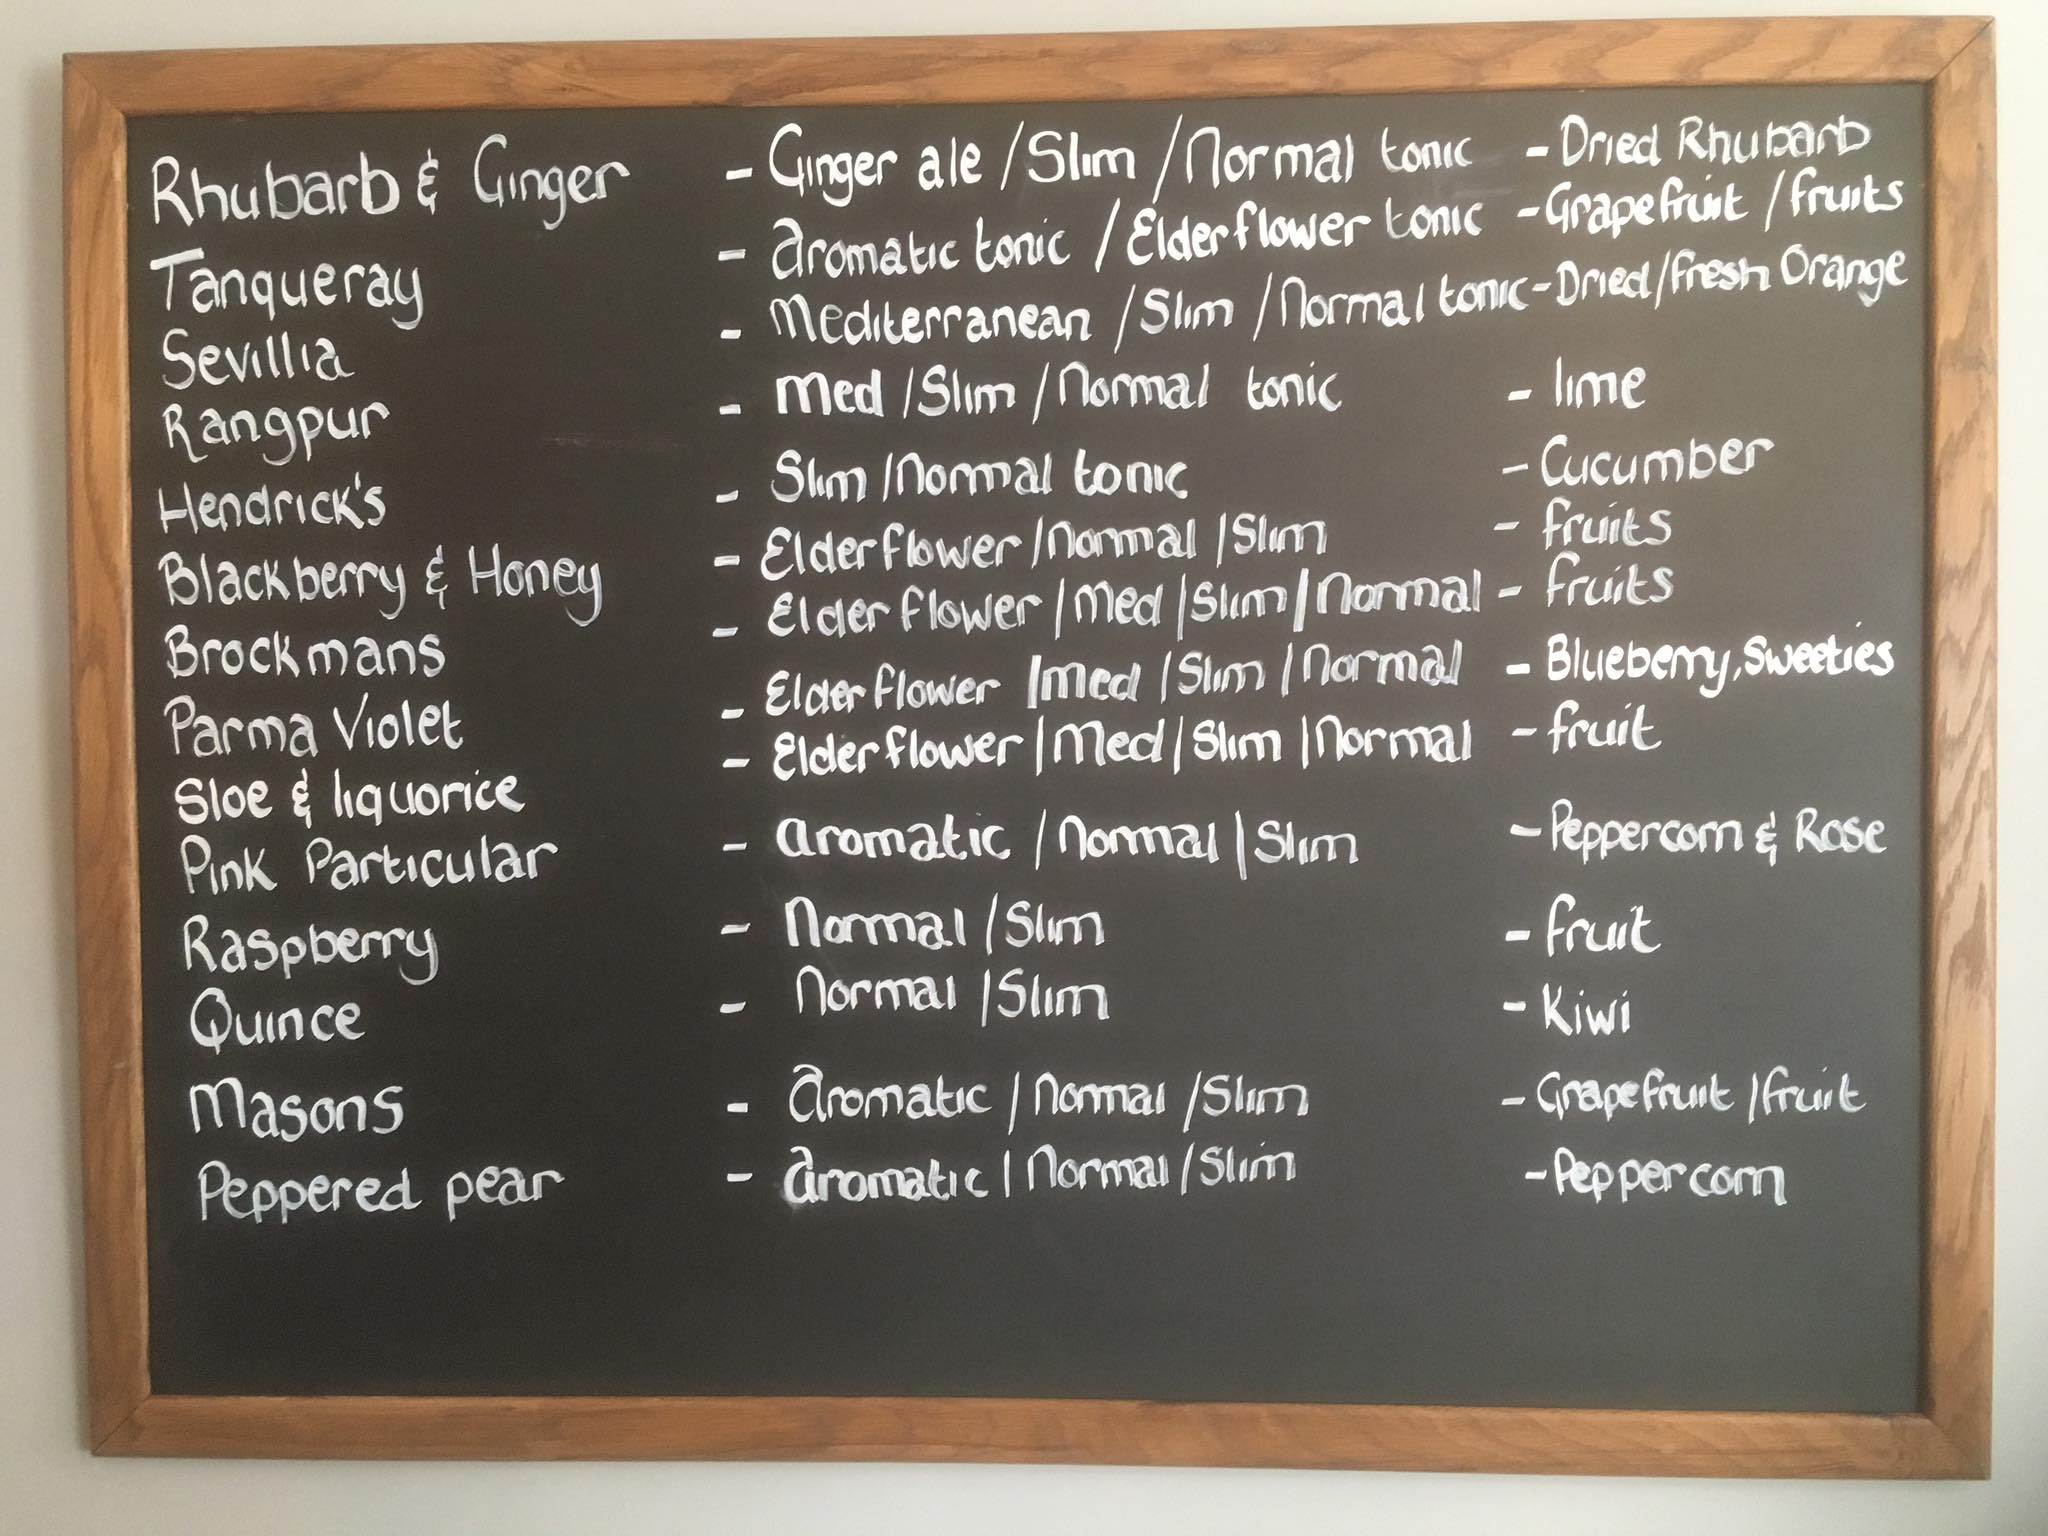 Rhubarb & Ginger - Ginger ale / Slim / Normal tonic - Dried Rhubarb
Tanqueray - Aromatic tonic / Elderflower tonic - Grapefruit / fruits
Sevillia - Mediterranean / Slim / Normal tonic - Dried/fresh Orange
Rangpur - Med / Slim / Normal tonic - lime
Hendrick's - Slim / Normal tonic - Cucumber
Blackberry & Honey - Elderflower / Normal / Slim - fruits
Brockmans - Elderflower / Med / Slim / Normal - fruits
Parma Violet - Elderflower / Med / Slim / Normal - Blueberry, Sweeties
Sloe & liquorice - Elderflower / Med / Slim / Normal - fruit
Pink Particular - Aromatic / Normal / Slim - Peppercorn & Rose
Raspberry - Normal / Slim - fruit
Quince - Normal / Slim - Kiwi
Masons - Aromatic / Normal / Slim - Grapefruit / fruit
Peppered pear - Aromatic / Normal / Slim - Peppercorn